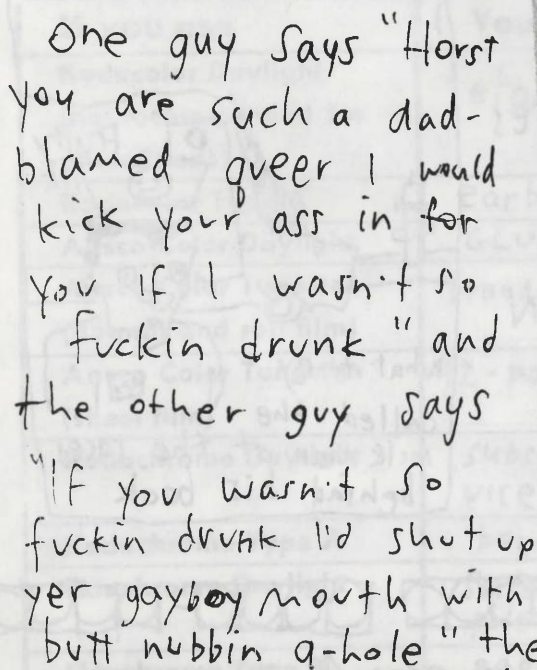 one guy says "Horst
you are such a dad-
blamed queer I would
kick your ass in for
you if I wasn't so
fuckin drunk" and
the other guy says
"if you wasn't so
fuckin drunk I'd shut up
yer gayboy mouth with
butt nubbin a-hole" the